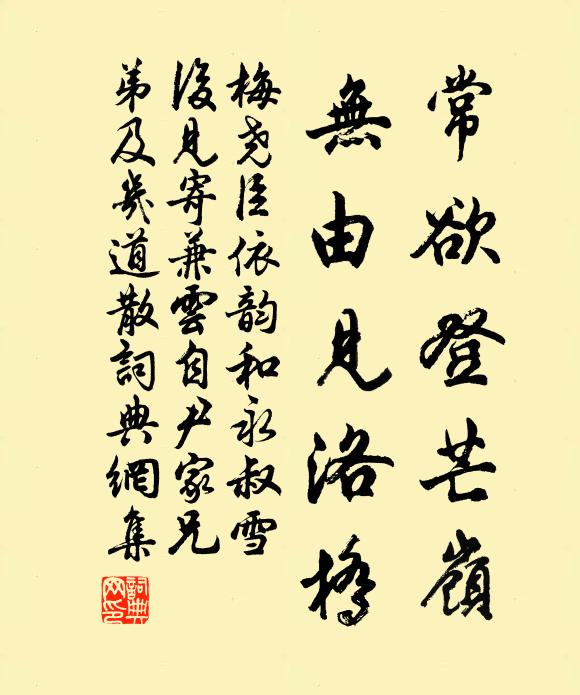 常欲登芒嶺
無由見洛橋
梅尧臣依韵和永叔雪
後見寄兼雲自尹家兄
弟及幾道散詞典網集
詞典
网印